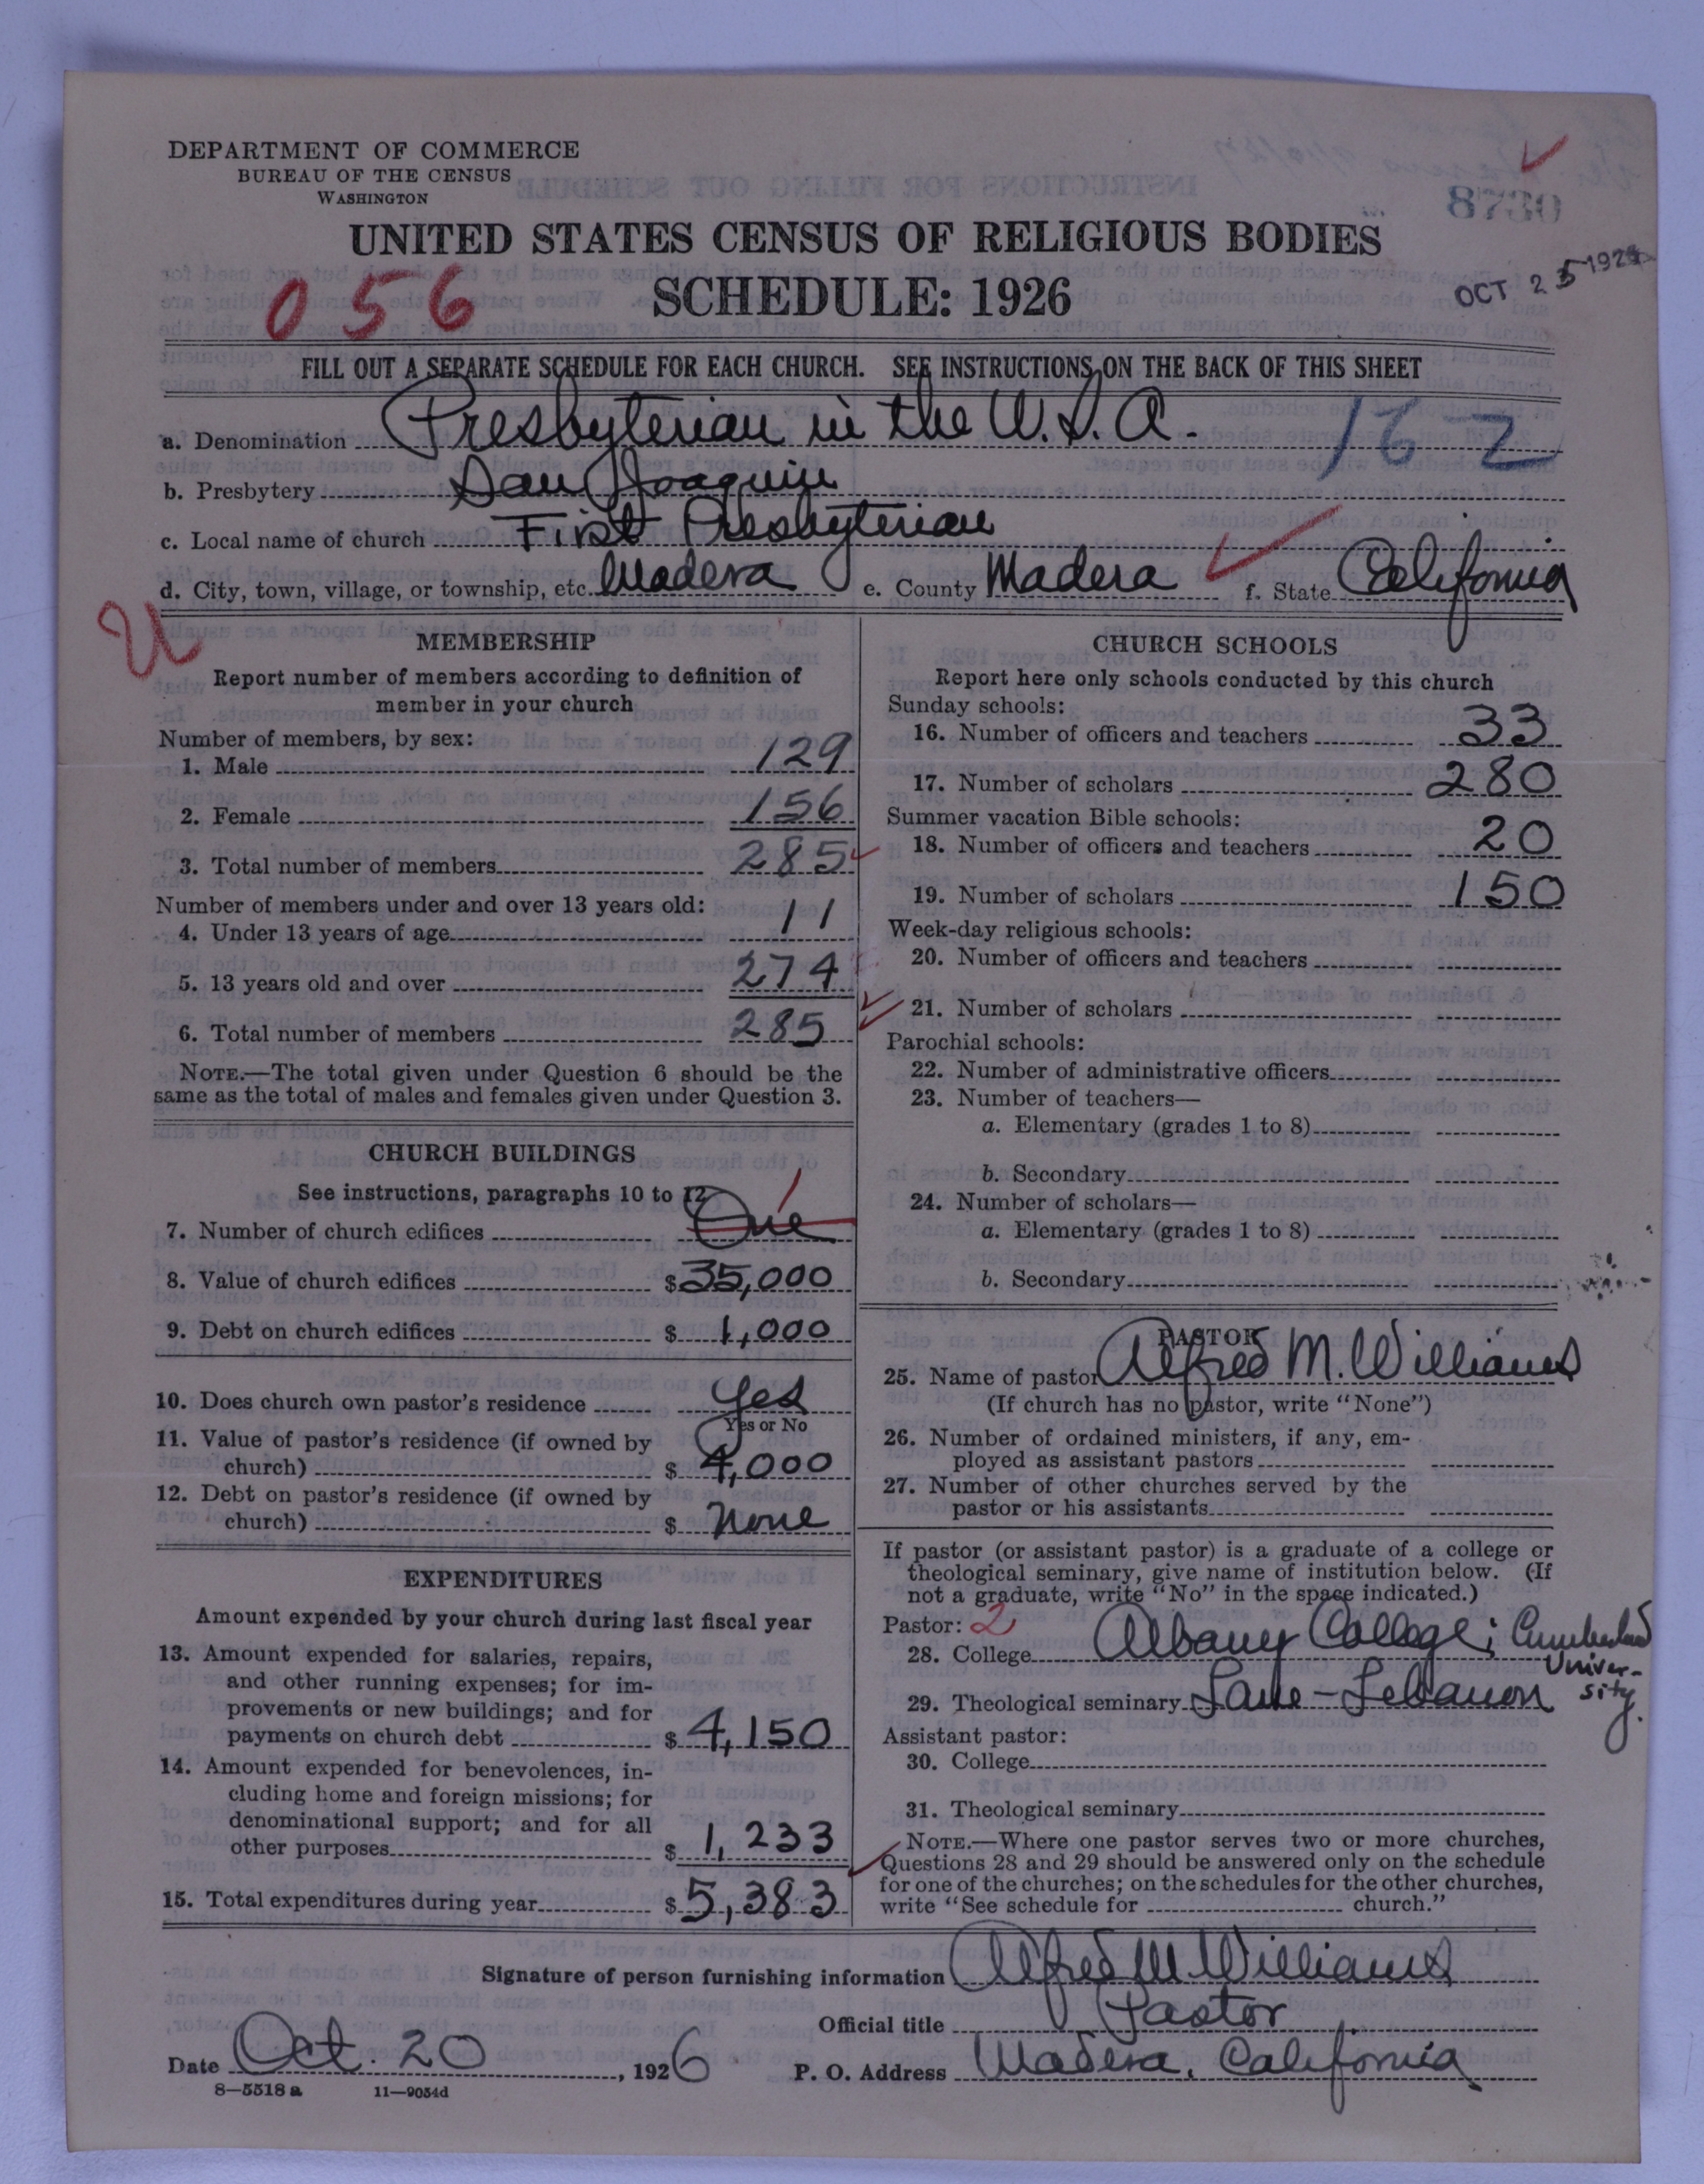 DEPARTMENT OF COMMERCE
BUREAU OF THE CENSUS
WASHINGTON
8730
UNITED STATES CENSUS OF RELIGIOUS BODIES
056
SCHEDULE: 1926
OCT 25 192
FILL OUT A SEPARATE SCHEDULE FOR EACH CHURCH. SEE INSTRUCTIONS ON THE BACK OF THIS SHEET
a. Denomination Presbyterian in the U.S.A. 162
b. Presbytery San Joaquin
c. Local name of church First Presbyterian
d. City, town, village, or township, etc. Madera e. County Madera f. State California
U
MEMBERSHIP
Report number of members according to definition of
member in your church
Number of members, by sex:
1. Male 129
2. Female 156
3. Total number of members 285
Number of members under and over 13 years old:
4. Under 13 years of age 11
5. 13 years old and over 274
6. Total number of members 285
NOTE.—The total given under Question 6 should be the
same as the total of males and females given under Question 3.
CHURCH BUILDINGS
See instructions, paragraphs 10 to 12
7. Number of church edifices One 1
8. Value of church edifices $35,000
9. Debt on church edifices $ 1,000
10. Does church own pastor's residence Yes
Yes or No
11. Value of pastor's residence (if owned by
church) $ 4,000
12. Debt on pastor's residence (if owned by
church) $ None
EXPENDITURES
Amount expended by your church during last fiscal year
13. Amount expended for salaries, repairs,
and other running expenses; for im-
provements or new buildings; and for
payments on church debt $ 4,150
14. Amount expended for benevolences, in-
cluding home and foreign missions; for
denominational support; and for all
other purposes $ 1,233
15. Total expenditures during year $5,383
CHURCH SCHOOLS
Report here only schools conducted by this church
Sunday schools:
16. Number of officers and teachers 33
17. Number of scholars 280
Summer vacation Bible schools:
18. Number of officers and teachers 20
19. Number of scholars 150
Week-day religious schools:
20. Number of officers and teachers
21. Number of scholars
Parochial schools:
22. Number of administrative officers
23. Number of teachers—
a. Elementary (grades 1 to 8)
b. Secondary
24. Number of scholars—
a. Elementary (grades 1 to 8)
b. Secondary
PASTOR
25. Name of pastor Alfred M. Williams
(If church has no pastor, write "None")
26. Number of ordained ministers, if any, em-
ployed as assistant pastors
27. Number of other churches served by the
pastor or his assistants
If pastor (or assistant pastor) is a graduate of a college or
theological seminary, give name of institution below. (If
not a graduate, write "No" in the space indicated.)
Pastor: 2
28. College Albany College; Cumberland
Univer-
sity.
29. Theological seminary Lane-Lebanon
Assistant pastor:
30. College
31. Theological seminary
NOTE.—Where one pastor serves two or more churches,
Questions 28 and 29 should be answered only on the schedule
for one of the churches; on the schedules for the other churches,
write "See schedule for church."
Signature of person furnishing information Alfred M. Williams
Official title Pastor
Date Oct. 20, 1926 P. O. Address Madera, California
8—5518 a 11—9054d